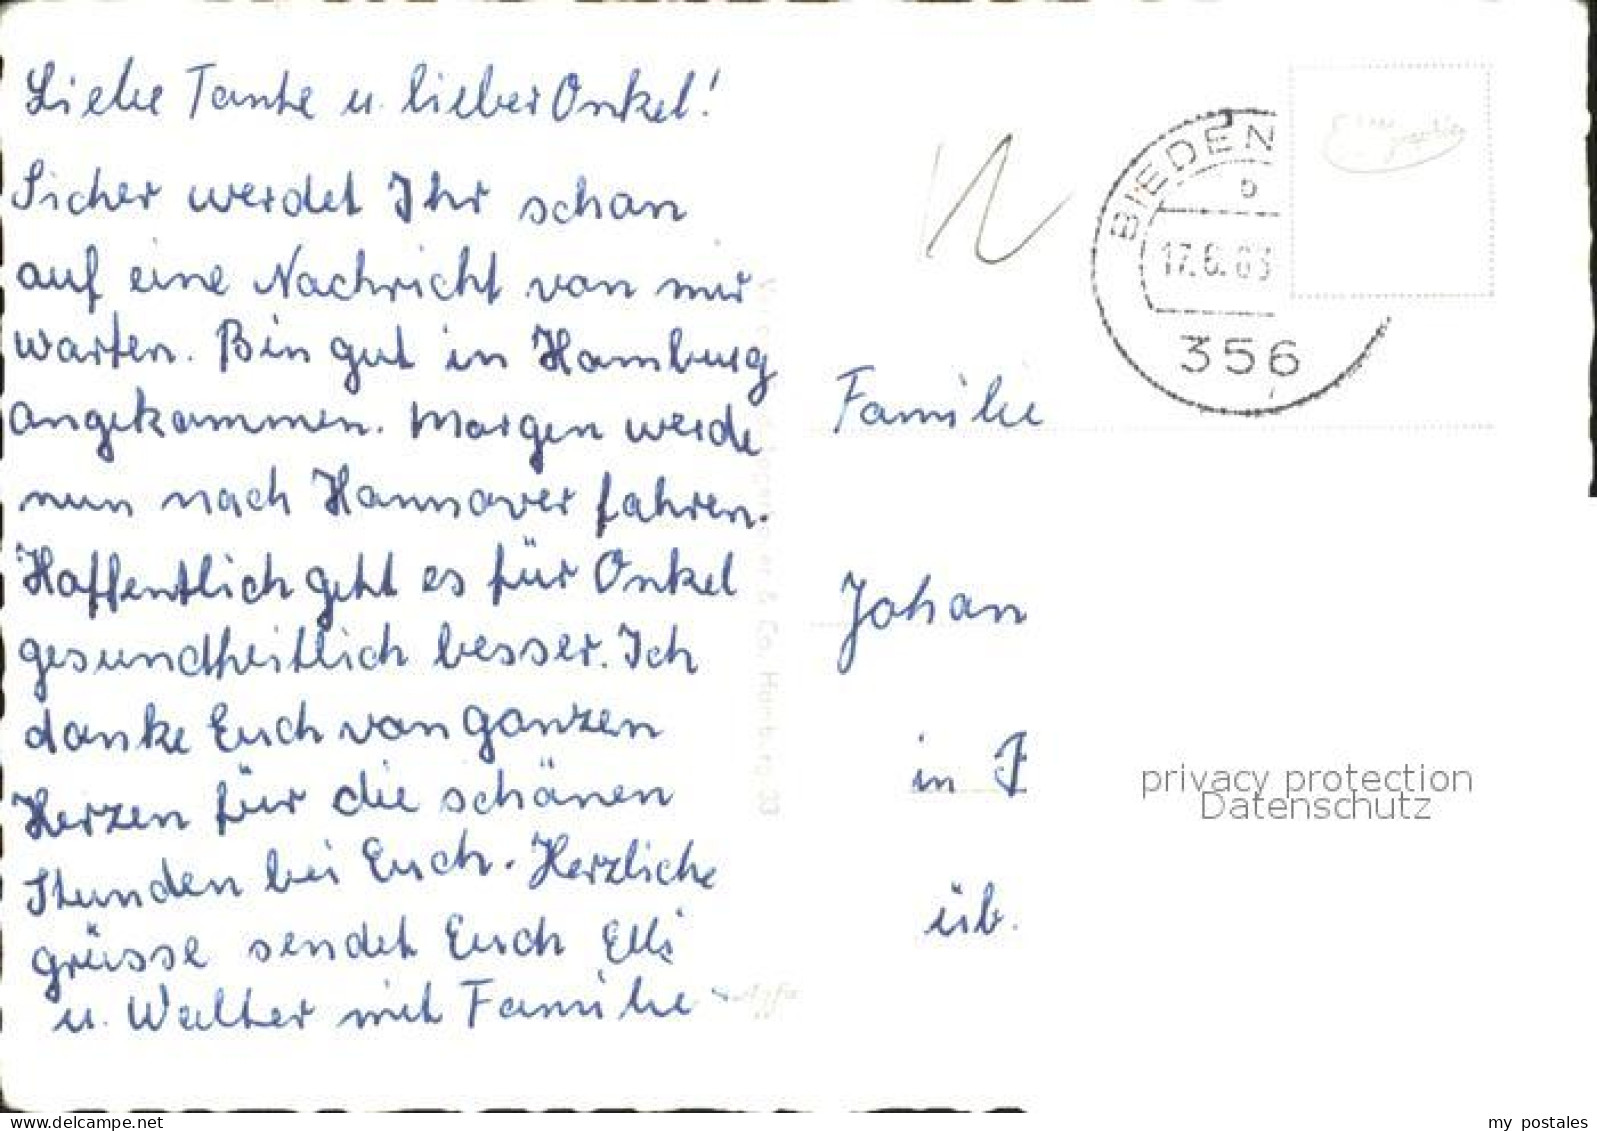 Liebe Tante u. lieber Onkel!
Sicher werdet Ihr schon
auf eine Nachricht von mir
warten. Bin gut in Hamburg
angekommen. Morgen werde
nun nach Hannover fahren.
Hoffentlich geht es für Onkel
gesundheitlich besser. Ich
danke Euch von ganzen
Herzen für die schönen
Stunden bei Euch. Herzliche
grüsse sendet Euch Elli
u. Walter mit Familie
BIEDEN
b
17.6.63
356
Familie
Johan
in
üb.
& Co, Hamburg 33
Agfa
privacy protection
Datenschutz
www.delcampe.net
my_postales